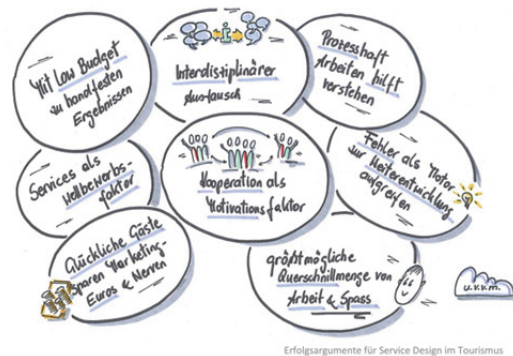 Mit Low Budget
zu handfesten
Ergebnissen
Interdisziplinärer
Austausch
Prozesshaft
Arbeiten hilft
verstehen
Services als
Wettbewerbs-
faktor
Kooperation als
Motivationsfaktor
Fehler als Motor
zur Weiterentwicklung
aufgreifen
Glückliche Gäste
sparen Marketing-
Euros & Nerven
größtmögliche
Querschnittmenge von
Arbeit & Spass
u.v.v.m.
Erfolgsargumente für Service Design im Tourismus